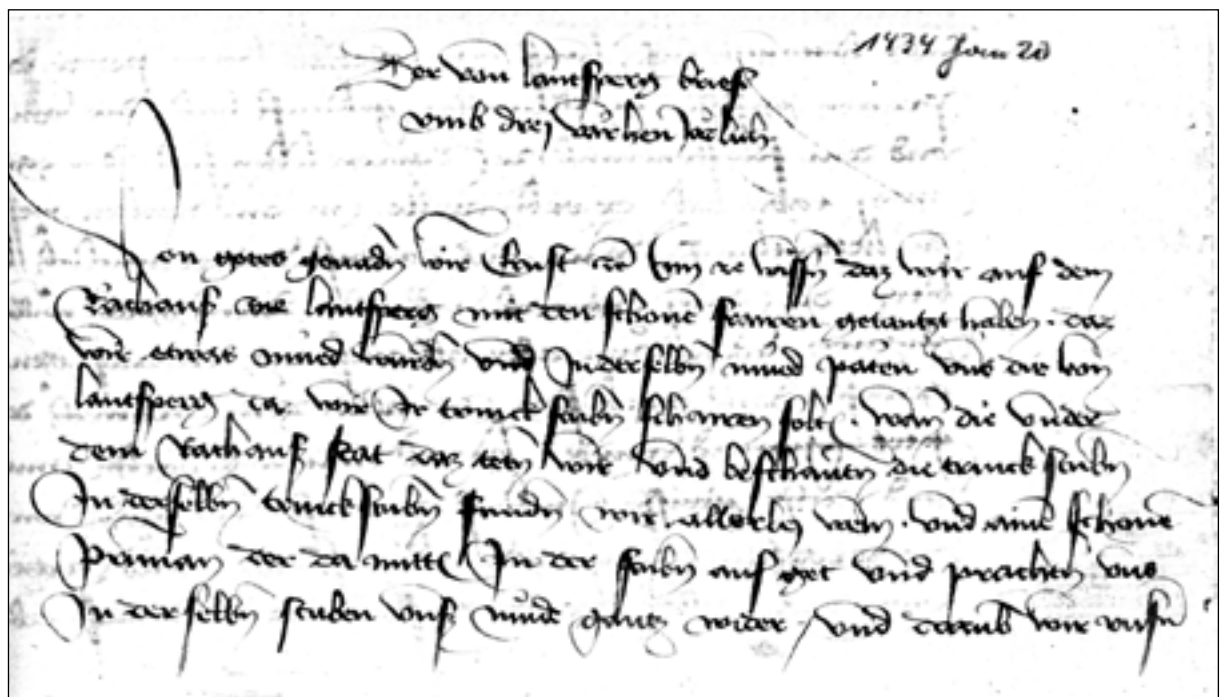 1434 Jan 20
Der von lantsperg brief
vmb drei värhen järlich
Von gotes genadn wir Ernst etc tun etc wissn daz wir auf dem
Rathauß ze lantsperg mit den schonen frawen getantzt haben . daz
wir etwas mued wurdn vnd In derselbn mued paten vns die von
lantsperg daz wir Ir trinckstubn schawen solt . wann die vnder
dem Rathauß stat daz tetn wir vnd beschautn die trinckstubn
In derselbn trinckstubn fundn wir allerlay wein . vnd ain schonen
prunnan der da mitt In der stubn auf get vnd prachtn vns
In derselbn stuben vnß mude gantz wider vnd darub wir vnsn